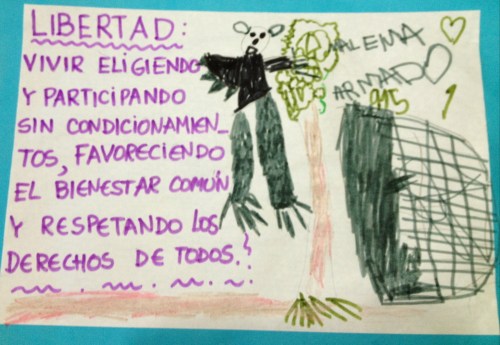 LIBERTAD:
VIVIR ELIGIENDO
Y PARTICIPANDO
SIN CONDICIONAMIEN_
TOS, FAVORECIENDO
EL BIENESTAR COMÚN
Y RESPETANDO LOS
DERECHOS DE TODOS.
MALENA
ARMADO